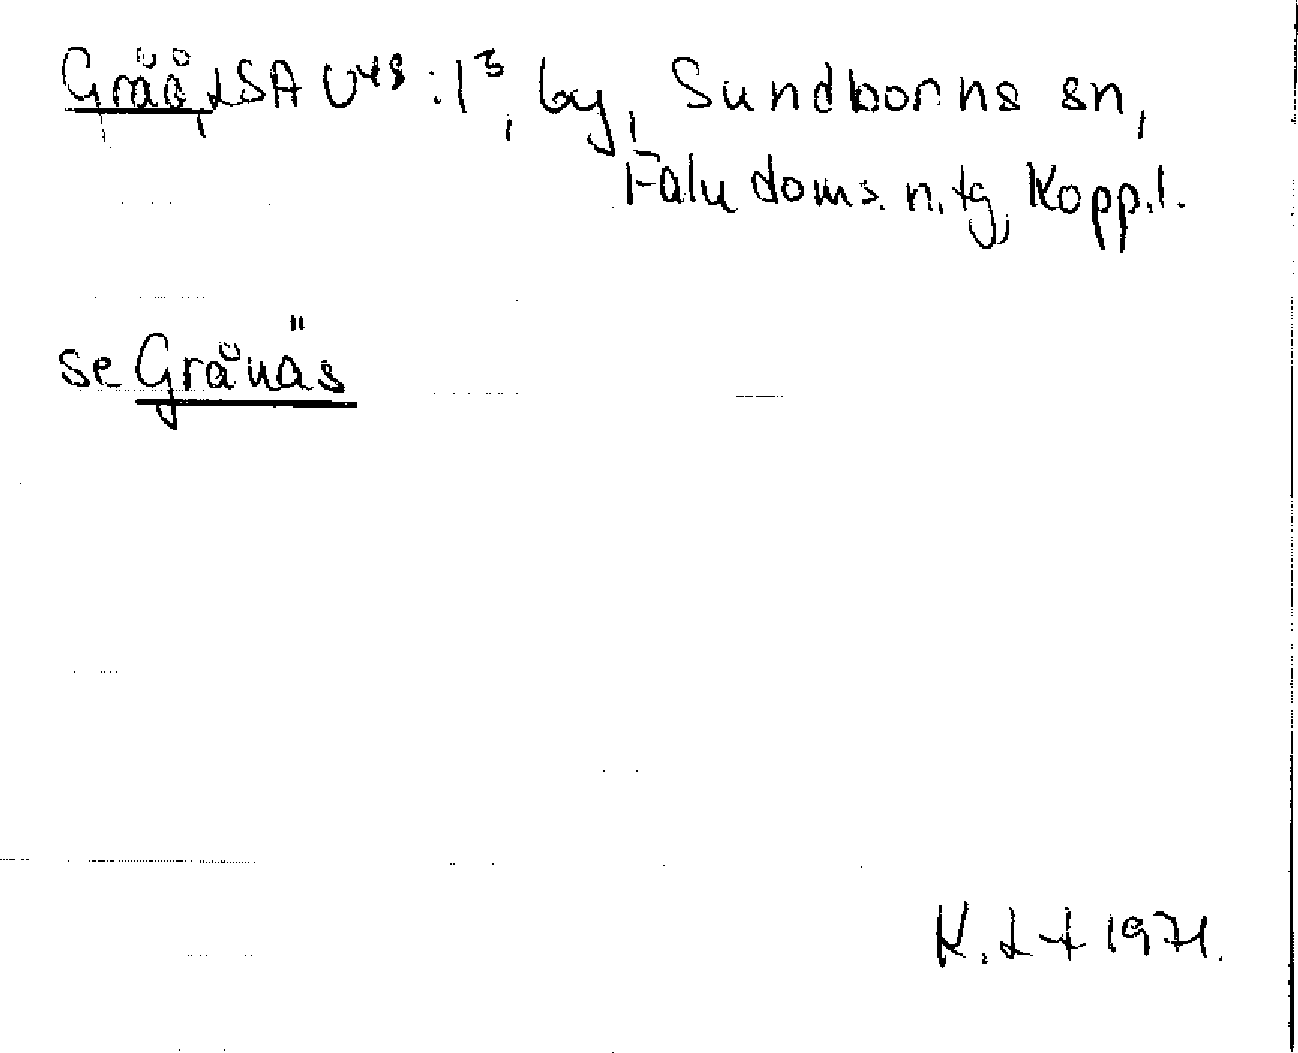 Gråå, LSA U48:1³, by, Sundborns sn,
Falu doms. n. tg, Kopp. l.
se Grånäs
K. L-t 1971.